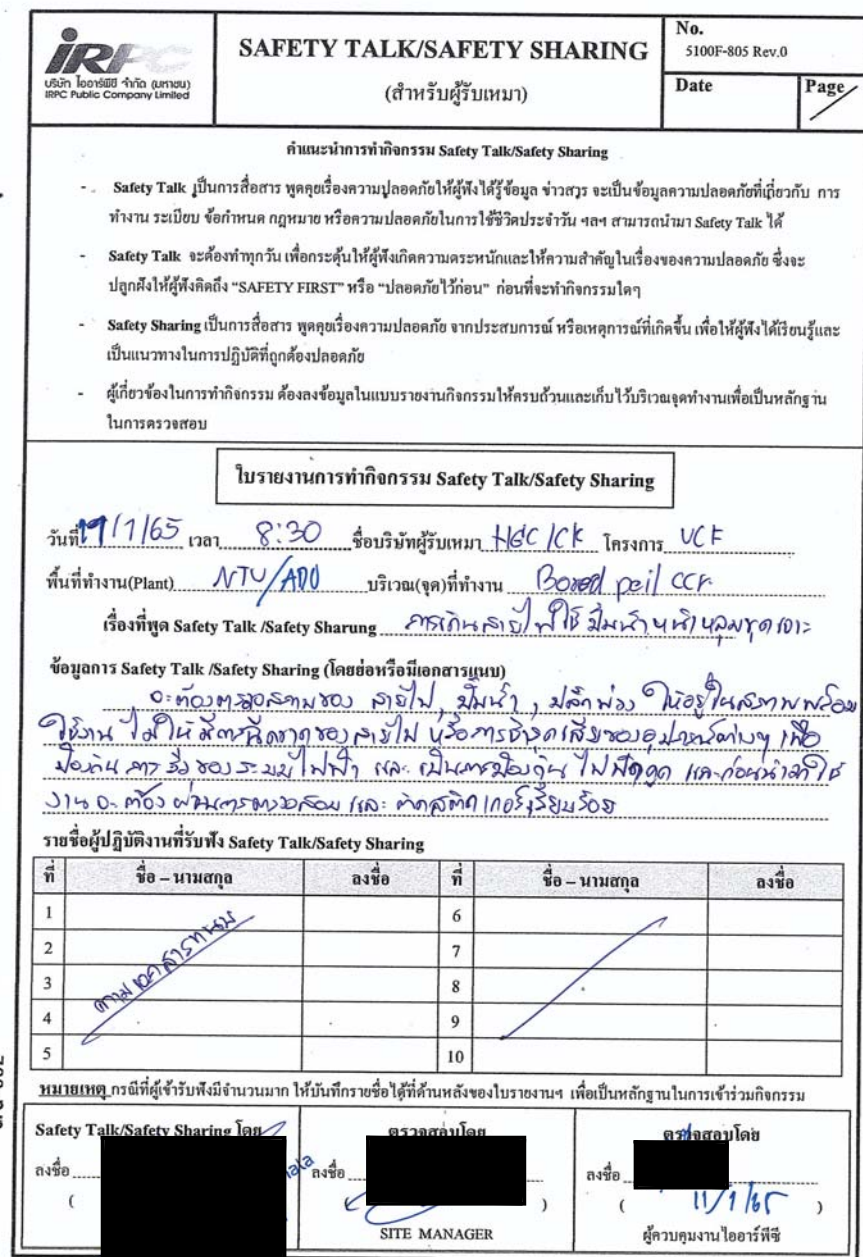 IRPC
บริษัท ไออาร์พีซี จำกัด (มหาชน)
IRPC Public Company Limited
SAFETY TALK/SAFETY SHARING
(สำหรับผู้รับเหมา)
No.
5100F-805 Rev.0
Date
Page
คำแนะนำการทำกิจกรรม Safety Talk/Safety Sharing
- Safety Talk เป็นการสื่อสาร พูดคุยเรื่องความปลอดภัยให้ผู้ฟังได้รู้ข้อมูล ข่าวสาร จะเป็นข้อมูลความปลอดภัยที่เกี่ยวกับ การ
ทำงาน ระเบียบ ข้อกำหนด กฎหมาย หรือความปลอดภัยในการใช้ชีวิตประจำวัน ฯลฯ สามารถนำมา Safety Talk ได้
- Safety Talk จะต้องทำทุกวัน เพื่อกระตุ้นให้ผู้ฟังเกิดความตระหนักและให้ความสำคัญในเรื่องของความปลอดภัย ซึ่งจะ
ปลูกฝังให้ผู้ฟังคิดถึง "SAFETY FIRST" หรือ "ปลอดภัยไว้ก่อน" ก่อนที่จะทำกิจกรรมใดๆ
- Safety Sharing เป็นการสื่อสาร พูดคุยเรื่องความปลอดภัย จากประสบการณ์ หรือเหตุการณ์ที่เกิดขึ้น เพื่อให้ผู้ฟังได้เรียนรู้และ
เป็นแนวทางในการปฏิบัติที่ถูกต้องปลอดภัย
- ผู้เกี่ยวข้องในการทำกิจกรรม ต้องลงข้อมูลในแบบรายงานกิจกรรมให้ครบถ้วนและเก็บไว้บริเวณจุดทำงานเพื่อเป็นหลักฐาน
ในการตรวจสอบ
ใบรายงานการทำกิจกรรม Safety Talk/Safety Sharing
วันที่ /1/65 เวลา 8:30 ชื่อบริษัทผู้รับเหมา HGC/CK โครงการ UCF
พื้นที่ทำงาน(Plant) NTU/ADU บริเวณ(จุด)ที่ทำงาน Bored peil CCR
เรื่องที่พูด Safety Talk /Safety Sharung การเดินสายไฟใช้ ปั๊มน้ำ หลุมขุดเจาะ
ข้อมูลการ Safety Talk /Safety Sharing (โดยย่อหรือมีเอกสารแนบ)
จะต้องตรวจสภาพของ สายไฟ, ปั๊มน้ำ, ปลั๊กพ่วง ให้อยู่ในสภาพพร้อม
ใช้งาน ไม่ให้มีการฉีกขาดของสายไฟ หรือการชำรุดเสียของอุปกรณ์ต่างๆ เพื่อ
ป้องกัน การ รั่ว ของระบบไฟฟ้า และ เป็นการป้องกัน ไฟฟ้าดูด และก่อนนำมาใช้
งาน จะ ต้อง ผ่านการตรวจสอบ และ ติดสติกเกอร์เรียบร้อย
รายชื่อผู้ปฏิบัติงานที่รับฟัง Safety Talk/Safety Sharing
ที่ ชื่อ – นามสกุล ลงชื่อ ที่ ชื่อ – นามสกุล ลงชื่อ
1 6
2 7
3 8
4 9
5 10
ตามเอกสารแนบ
หมายเหตุ กรณีที่ผู้เข้ารับฟังมีจำนวนมาก ให้บันทึกรายชื่อได้ที่ด้านหลังของใบรายงานฯ เพื่อเป็นหลักฐานในการเข้าร่วมกิจกรรม
Safety Talk/Safety Sharing โดย ตรวจสอบโดย ตรวจสอบโดย
ลงชื่อ ลงชื่อ ลงชื่อ
( ) ( 11/1/65 )
SITE MANAGER ผู้ควบคุมงานไออาร์พีซี